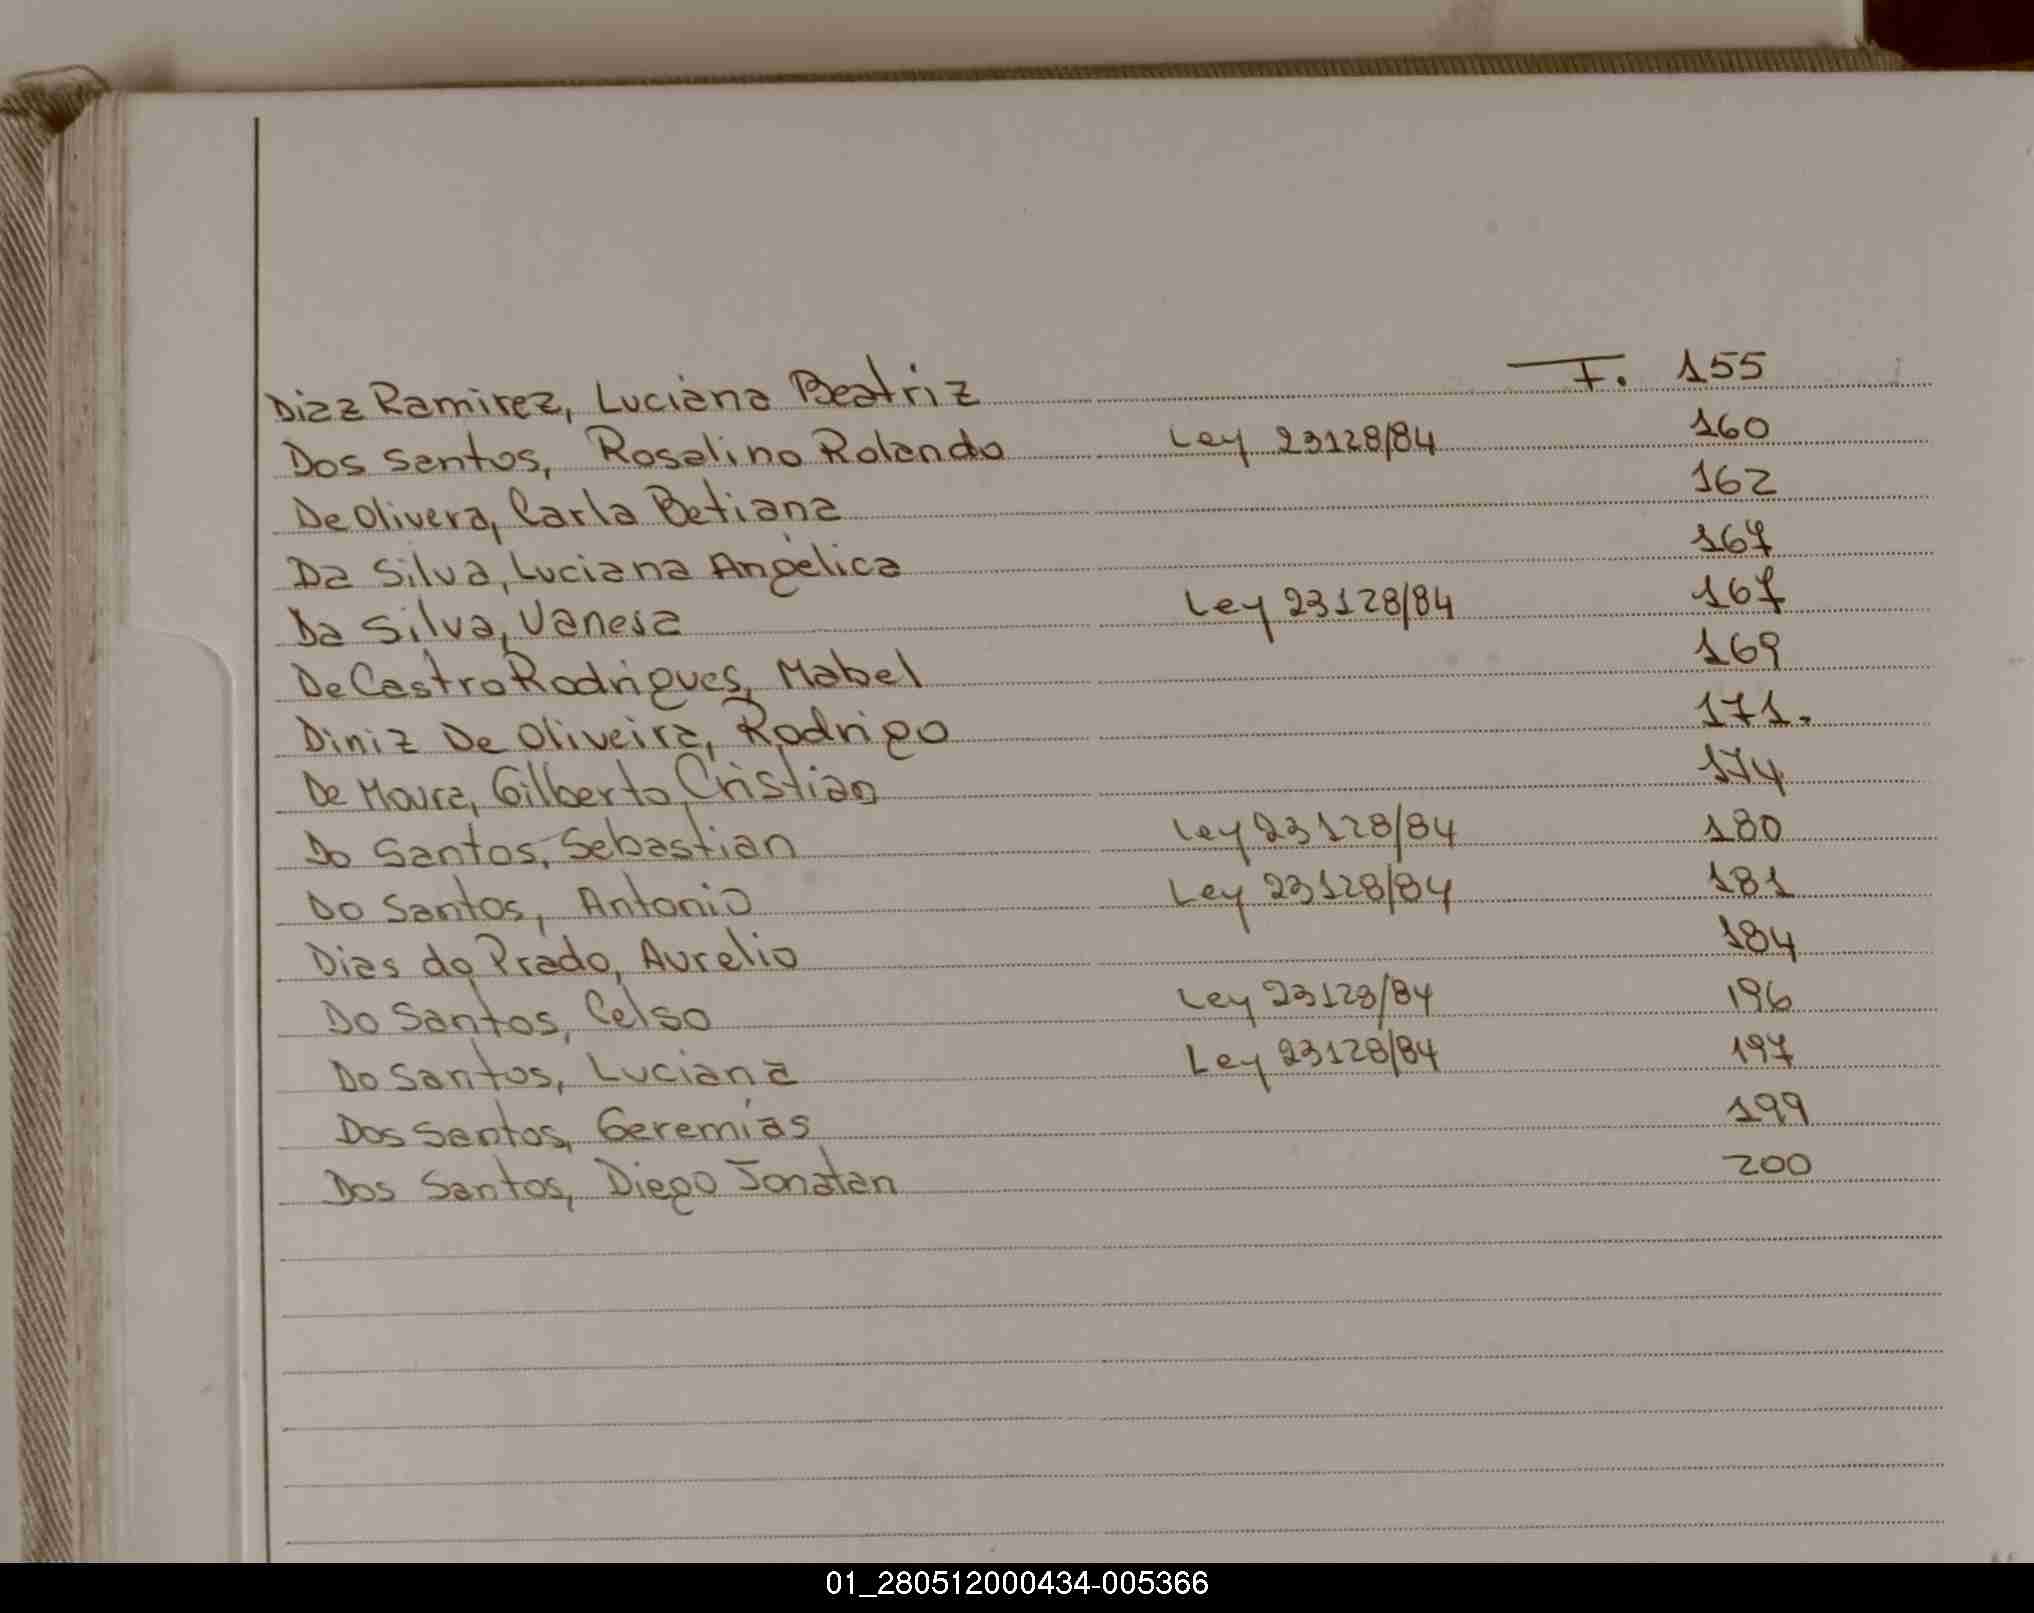 Diaz Ramirez, Luciana Beatriz F. 155
Dos Santos, Rosalino Rolando Ley 23128/84 160
De Olivera, Carla Betiana 162
Da Silva, Luciana Angélica 167
Da Silva, Vanesa Ley 23128/84 167
De Castro Rodrigues, Mabel 169
Diniz De Oliveira, Rodrigo 171.
De Moura, Gilberto Cristian 174
Do Santos, Sebastian Ley 23128/84 180
Do Santos, Antonio Ley 23128/84 181
Dias do Prado, Aurelio 184
Do Santos, Celso Ley 23128/84 196
Do Santos, Luciana Ley 23128/84 197
Dos Santos, Geremías 199
Dos Santos, Diego Jonatan 200
01_280512000434-005366